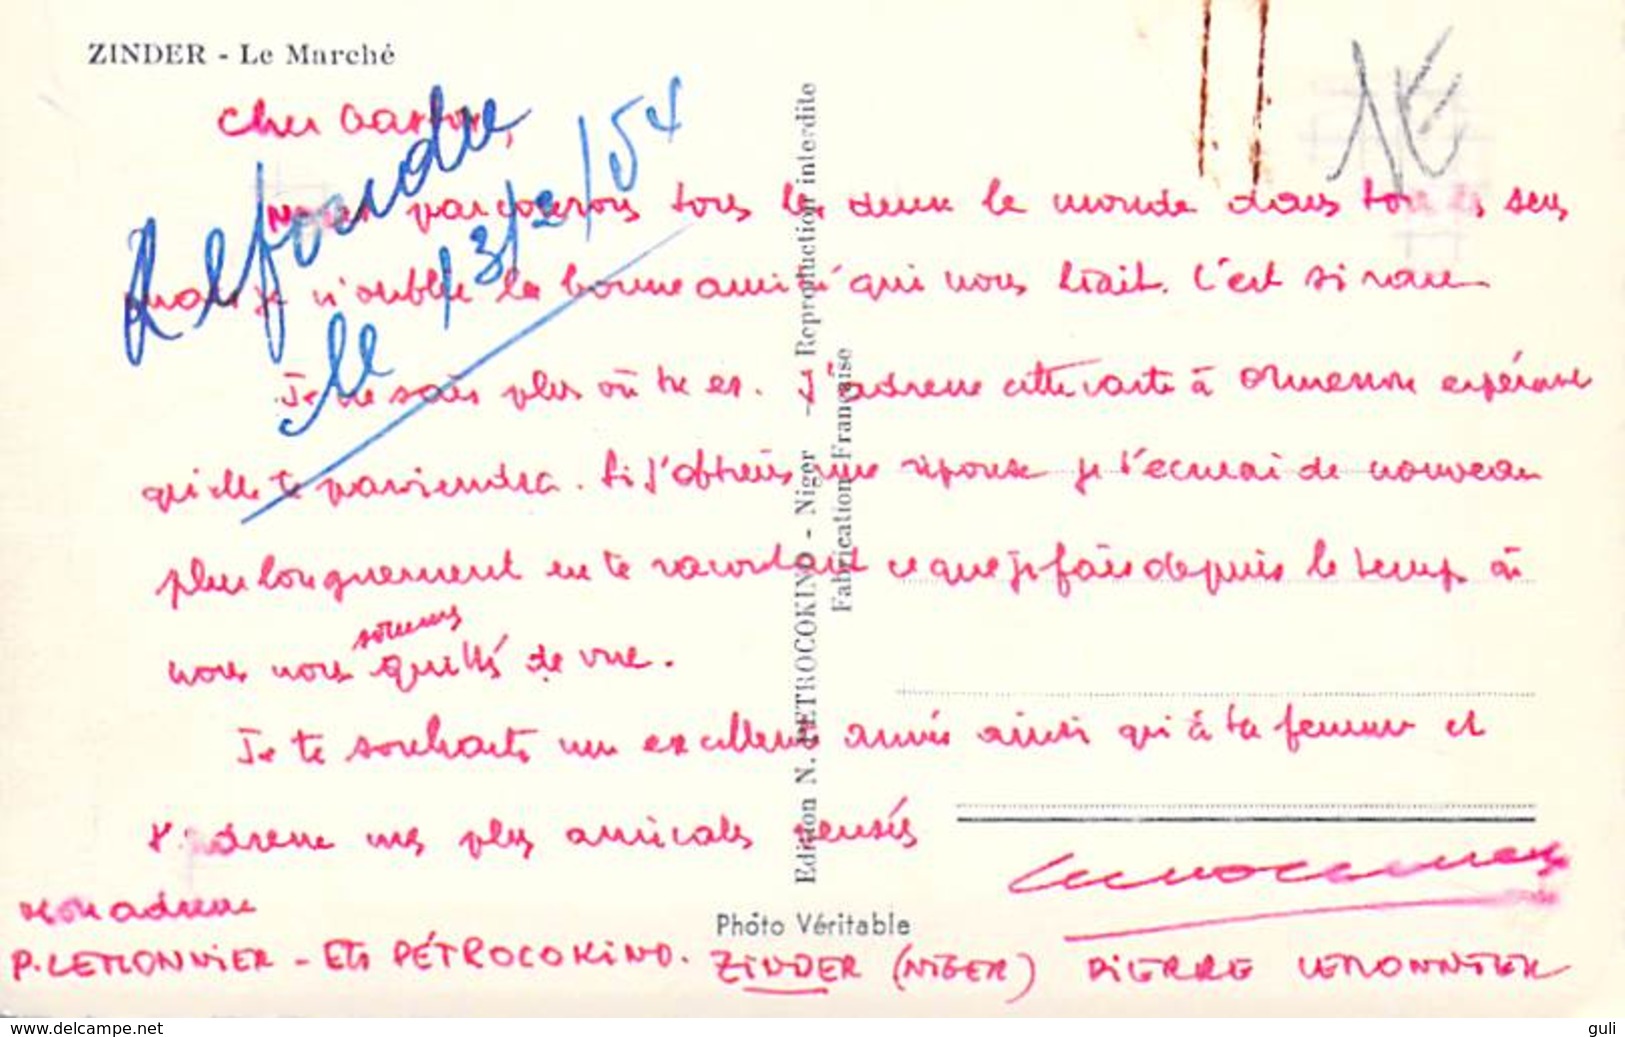 ZINDER - Le Marché
1€
Cher Gaston,
Répondu
le 13/2/54
Nous parcourons tous les deux le monde dans tous les sens
mais je n'oublie la bonne amitié qui nous liait. C'est si rare
Je ne sais plus où tu es. J'adresse cette carte à Ormesson espérant
qu'elle te parviendra. Si j'obtiens une réponse je t'écrirai de nouveau
plus longuement en te racontant ce que je fais depuis le temps où
nous nous sommes quittés de vue.
Je te souhaite une excellente année ainsi qu'à ta femme et
t'adresse mes plus amicales pensées
Lemonnier
Mon adresse
P. LEMONNIER - Ets PÉTROCOKINO. ZINDER (NIGER) PIERRE LEMONNIER
Edition N. PETROCOKINO - Niger - Reproduction interdite
Fabrication Française
Photo Véritable
www.delcampe.net
guli